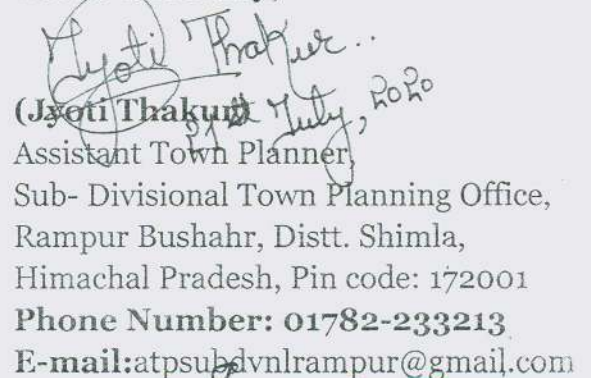 Jyoti Thakur..
(Jyoti Thakur)
21st July, 2020
Assistant Town Planner,
Sub- Divisional Town Planning Office,
Rampur Bushahr, Distt. Shimla,
Himachal Pradesh, Pin code: 172001
Phone Number: 01782-233213
E-mail:atpsubdvnlrampur@gmail.com